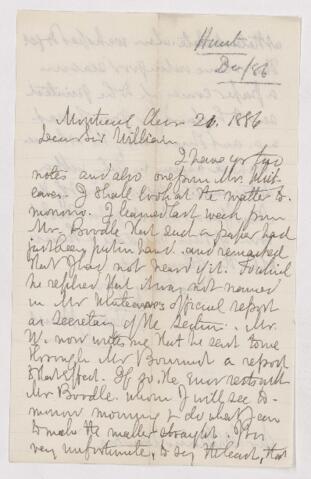 Hunt
Dec/86
Montreal Decr 20. 1886
Dear Sir William
I have yr two
notes and also one from Mr. Whit-
eaves. I shall look at the matter to-
morrow. I learned last week from
Mr. Boodle that such a paper had
just been put in hand and remarked
that I had not heard of it. To which
he replied that it was not named
in Mr Whiteaves official report
as Secretary of the Section. Mr.
W. now writes me that he sent some
through Mr Bourinot a report
to that effect. If so, the error rests with
Mr Boodle whom I will see to-
morrow morning & do what I can
to make the matter straight. It is
very unfortunate, to say the least, that